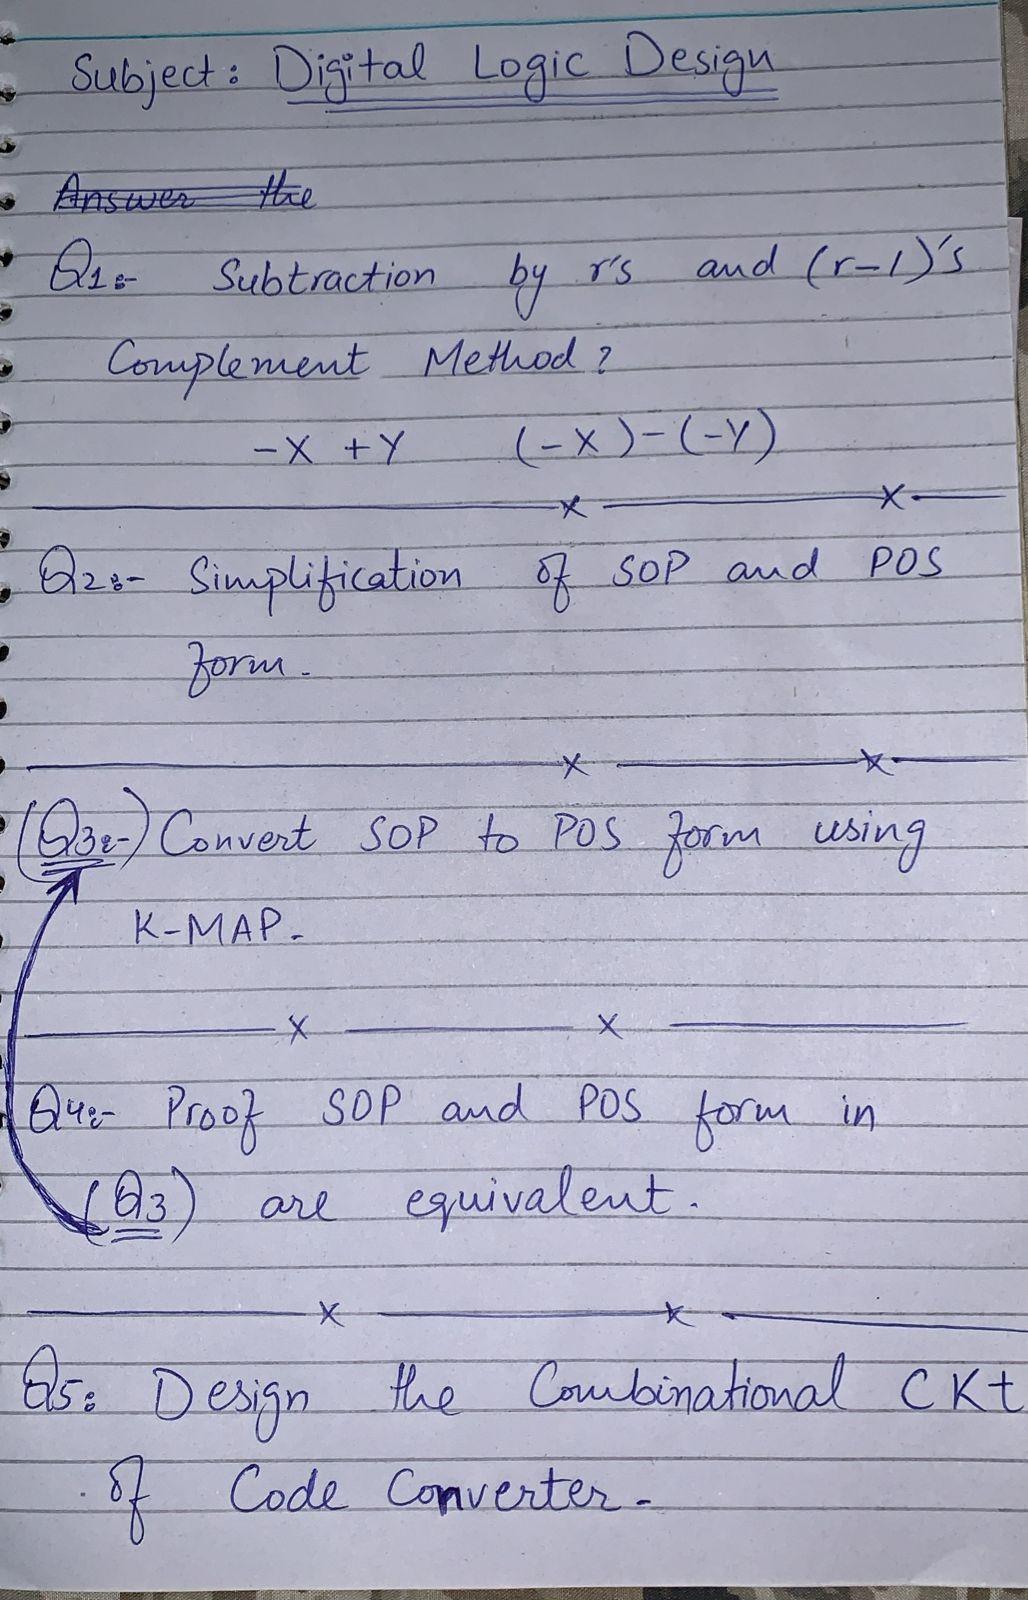 Subject: Digital Logic Design
Answer the
Q1:- Subtraction by r's and (r-1)'s
Complement Method?
-X + Y (-X)-(-Y)
Q2:- Simplification of SOP and POS
form.
(Q3:-) Convert SOP to POS form using
K-MAP.
Q4:- Proof SOP and POS form in
(Q3) are equivalent.
Q5: Design the Combinational CKt
of Code Converter.